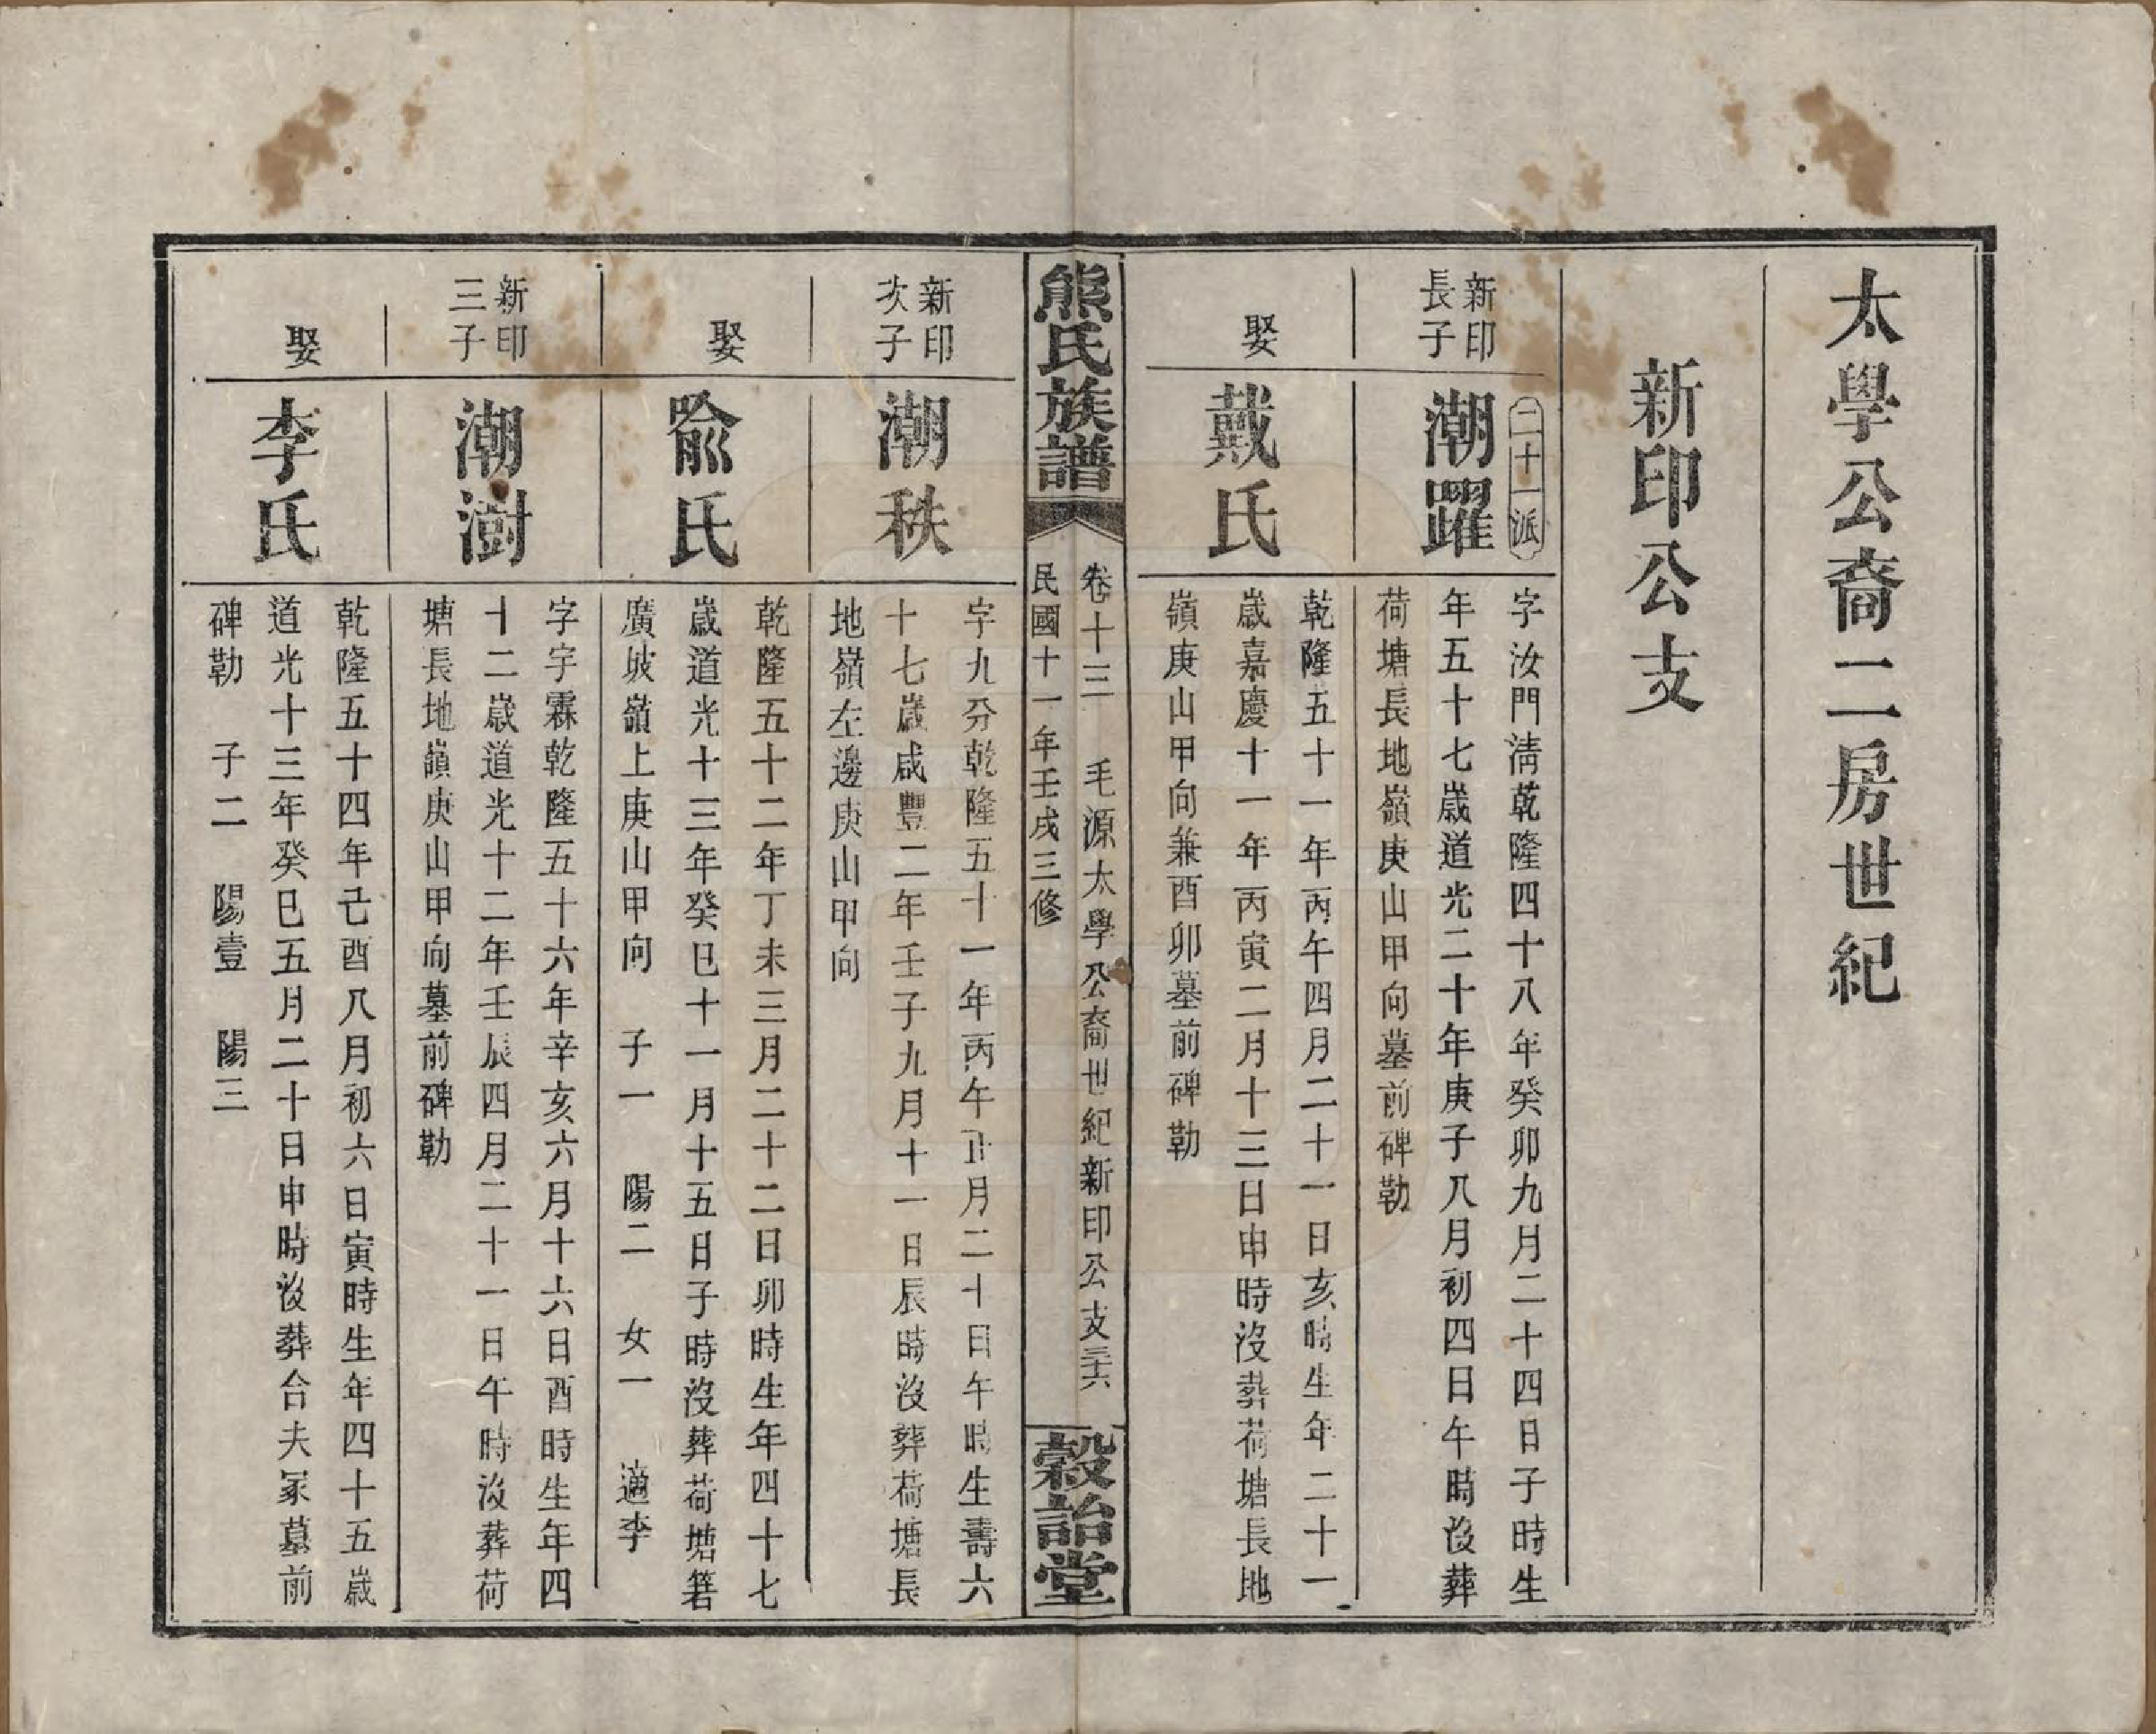 太學公裔二房世紀
新印公支
二十一派
新印
長子
潮躍
字汝門淸乾隆四十八年癸卯九月二十四日子時生
年五十七歲道光二十年庚子八月初四日午時沒葬
荷塘長地嶺庚山甲向墓前碑勒
娶
戴氏
乾隆五十一年丙午四月二十一日亥時生年二十一
歲嘉慶十一年丙寅二月十三日申時沒葬荷塘長地
嶺庚山甲向兼酉卯墓前碑勒
熊氏族譜
卷十三 毛源太學公裔世紀新印公支三十六
民國十一年壬戌三修
穀詒堂
新印
次子
潮秩
字九分乾隆五十一年丙午正月二十日午時生壽六
十七歲咸豐二年壬子九月十一日辰時沒葬荷塘長
地嶺左邊庚山甲向
娶
喩氏
乾隆五十二年丁未三月二十二日卯時生年四十七
歲道光十三年癸巳十一月十五日子時沒葬荷塘箬
廣坡嶺上庚山甲向 子一 陽二 女一 適李
新印
三子
潮澍
字宇霖乾隆五十六年辛亥六月十六日酉時生年四
十二歲道光十二年壬辰四月二十一日午時沒葬荷
塘長地嶺庚山甲向墓前碑勒
娶
李氏
乾隆五十四年己酉八月初六日寅時生年四十五歲
道光十三年癸巳五月二十日申時沒葬合夫冢墓前
碑勒 子二 陽壹 陽三